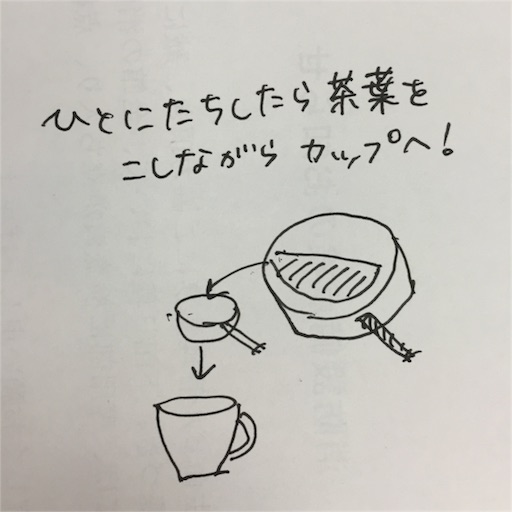 ひとにたちしたら茶葉を
こしながら カップへ!